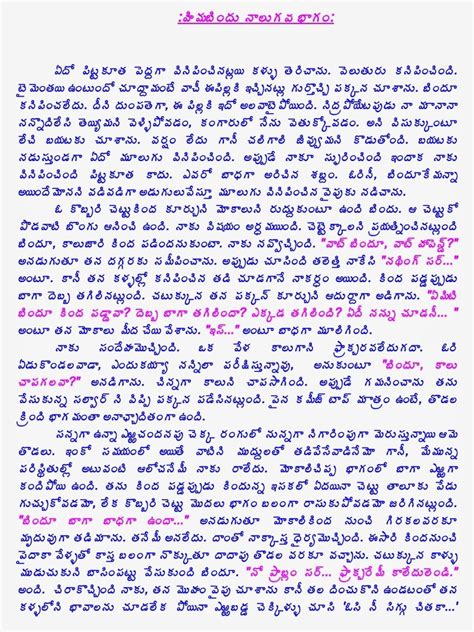 :హిమబిందు నాలుగవ భాగం:
ఏదో పిట్టకూత పెద్దగా వినిపించినట్లయి కళ్ళు తెరిచాను. వెలుతురు కనిపించింది.
టైమెంతయి ఉంటుందో చూద్దామంటే వాచీ ఈపిల్లకి ఇచ్చినట్లు గుర్తొచ్చి పక్కన చూశాను. బిందూ
కనిపించలేదు. దీని దుంపతెగా, ఈ పిల్లకి ఇదో అలవాటైపోయింది. నిద్రపోయేటపుడు నా మానానా
నన్నొదిలేసి తెయ్యమని వెళ్ళిపోవడం, కంగారులో నేను వెతుక్కోవడం. అని విసుక్కుంటూ
లేచి బయటకు చూశాను. వర్షం లేదు గానీ చలిగాలి జివ్వుమని కొడుతోంది. బయటకు
నడుస్తుండగా ఏదో మూలుగు వినిపించింది. అప్పుడే నాకు స్ఫురించింది ఇందాక నాకు
వినిపించింది పిట్టకూత కాదు. ఎవరో బాధగా అరిచిన శబ్దం. ఓరినీ, బిందూకేమన్నా
అయిందేమోనని వడివడిగా అడుగులువేస్తూ మూలుగు వినిపించిన వైపుకు నడిచాను.
ఓ కొబ్బరి చెట్టుకింద కూర్చుని మోకాలుని రుద్దుకుంటూ ఉంది బిందు. ఆ చెట్టుకో
పొడవాటి బొంగు ఆనించి ఉంది. నాకు విషయం అర్థమయ్యింది. చెట్టెక్కాలని ప్రయత్నించినట్లుంది
బిందూ, కాలుజారి కింద పడిందనుకుంటా. నాకు నవ్వొచ్చింది. "వాట్ బిందూ, వాట్ హాపెన్డ్?"
అనడుగుతూ తన దగ్గరకు సమీపించాను. అప్పుడు చూసింది తలెత్తి నాకేసి "నథింగ్ సర్..."
అంటూ. కానీ తన కళ్ళల్లో కనిపించిన తడి చూడగానే నాకర్థం అయింది. కింద పడ్డప్పుడు
బాగా దెబ్బ తగిలినట్లుంది. చటుక్కున తన పక్కన్ కూర్చుని ఆదుర్దాగా అడిగాను. "ఏమిటి
బిందూ కింద పడ్డావా? దెబ్బ బాగా తగిలిందా? ఎక్కడ తగిలింది? ఏదీ నన్ను చూడనీ... "
అంటూ తన మోకాలు మీద చేయి వేశాను. "ఇస్..." అంటూ బాధగా మూలిగింది.
నాకు సందేహమొచ్చింది. ఒక వేళ కాలుగాని ఫ్రాక్చరవలేదుగదా. ఓరి
ఏడుకొండలవాడా, ఎందుకయ్యా నన్నిలా పరీక్షిస్తున్నావు, అనుకుంటూ "బిందూ, కాలు
చాపగలవా?" అనడిగాను. చిన్నగా కాలు చాపసాగింది. అప్పుడే గమనించాను తను
వేసుకున్న సల్వార్ ని విప్పి పక్కన పడేసినట్లుంది. పైన కమీజ్ టాప్ మాత్రం ఉంటే, తొడల
క్రింది భాగమంతా అనాచ్ఛాదితంగా ఉంది.
సన్నగా ఉన్నా ఎఱ్ఱచందనపు చెక్క రంగులో నున్నగా నిగారింపుగా మెరుస్తున్నాయి ఆమె
తొడలు. ఇంకో సమయంలో అయితే వాటిని ముద్దులతో తడిపేసేవాడినేమో గానీ, మేమున్న
పరిస్థితుల్లో అటువంటి ఆలోచనేమీ నాకు రాలేదు. మోకాలిచిప్ప భాగంలో బాగా ఎఱ్ఱగా
కందిపోయి ఉంది. తను కింద పడ్డప్పుడు కిందున్న ఇసకలో ఏదయినా చెట్టు తాలూకు పేడు
గుచ్చుకోవడమో, లేక కొబ్బరి చెట్టు మొదలు భాగం బలంగా రాసుకుపోవడమో జరిగినట్లుంది.
"బిందూ బాగా బాధగా ఉందా..." అనడుగుతూ మోకాలికింద నుంచి గిరకలవరకూ
మృదువుగా తడిమాను. తనేమీ అనలేదు. దాంతో నాక్కాస్త ధైర్యమొచ్చింది. ఈసారి కిందనుంచి
పైదాకా వేళ్ళతో కాస్త బలంగా నొక్కుతూ దాదాపు తొడల వరకూ వచ్చాను. చటుక్కున కాళ్ళు
ముడుచుకుని బాసింపట్టు వేసుకు కూర్చుంది బిందూ. "నో ప్రాబ్లం సర్... ఫ్రాక్చరేమీ కాలేదులెండి."
అంది. చిరాకొచ్చింది నాకు, తన మొహం వైపు చూశాను కానీ తల దించుకొని ఉండటంతో తన
కళ్ళలోని భావాలను చూడలేక పోయినా ఎఱ్ఱబడ్డ చెక్కిళ్ళు చూసి 'ఓసి నీ సిగ్గు చితకా...'